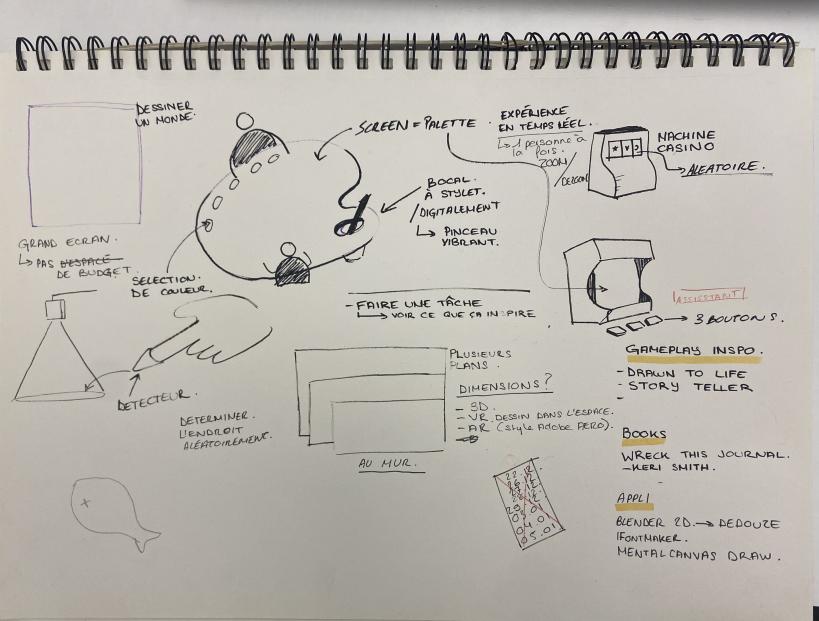 DESSINER
UN MONDE.
GRAND ECRAN.
↳ PAS D'ESPACE
DE BUDGET.
SELECTION.
DE COULEUR.
SCREEN = PALETTE
BOCAL.
À STYLET.
/DIGITALEMENT
↳ PINCEAU
VIBRANT.
EXPÉRIENCE
EN TEMPS RÉEL.
↳ 1 personne à
la fois.
ZOOM/
/DEZOOM
MACHINE
CASINO
ALEATOIRE.
ASSISTANT
3 BOUTONS.
- FAIRE UNE TÂCHE
↳ VOIR CE QUE ÇA INSPIRE
DETECTEUR.
DETERMINER.
L'ENDROIT
ALÉATOIREMENT.
PLUSIEURS
PLANS.
AU MUR.
DIMENSIONS?
- 3D.
- VR. DESSIN DANS L'ESPACE.
- AR (style Adobe AERO).
GAMEPLAY INSPO.
- DRAWN TO LIFE
- STORY TELLER
-
BOOKS
WRECK THIS JOURNAL.
- KERI SMITH.
APPLI
BLENDER 2D. → DEDOUZE
IFONTMAKER.
MENTALCANVAS DRAW.
22.12
04.01
05.01